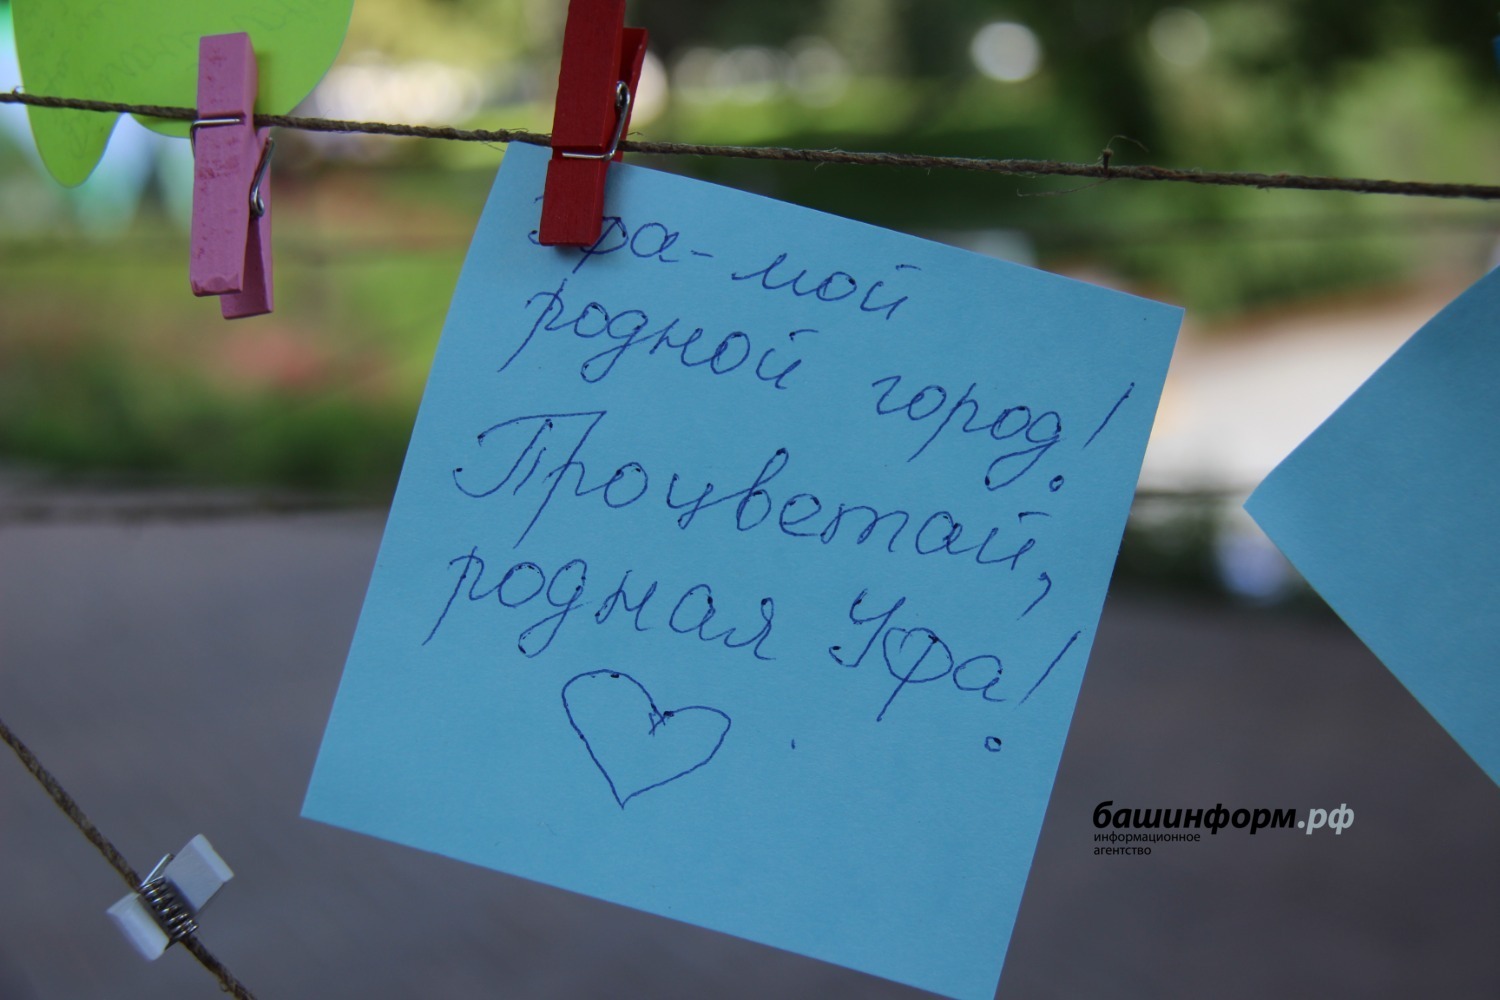 Уфа - мой
родной город!
Процветай,
родная Уфа!
башинформ.рф
информационное
агентство